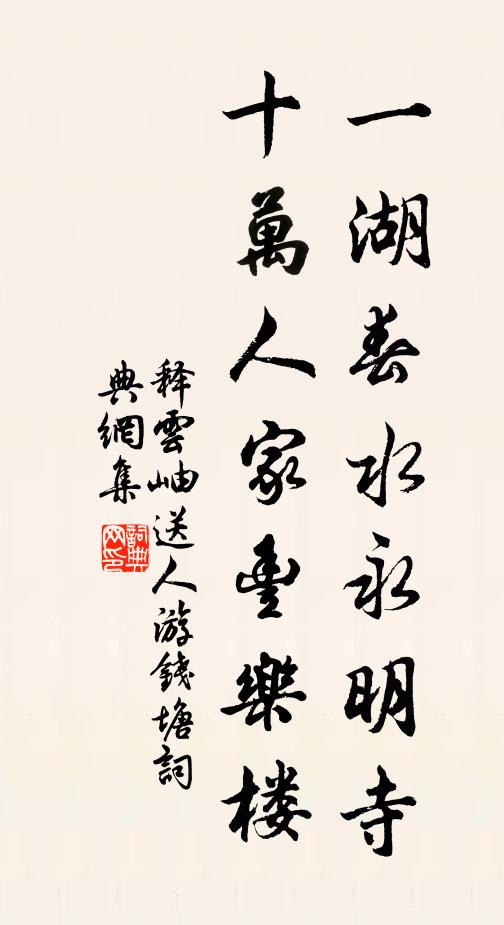 一湖春水永明寺
十萬人家豐樂楼
释雲岫送人游錢塘詞
典網集
詞典網印